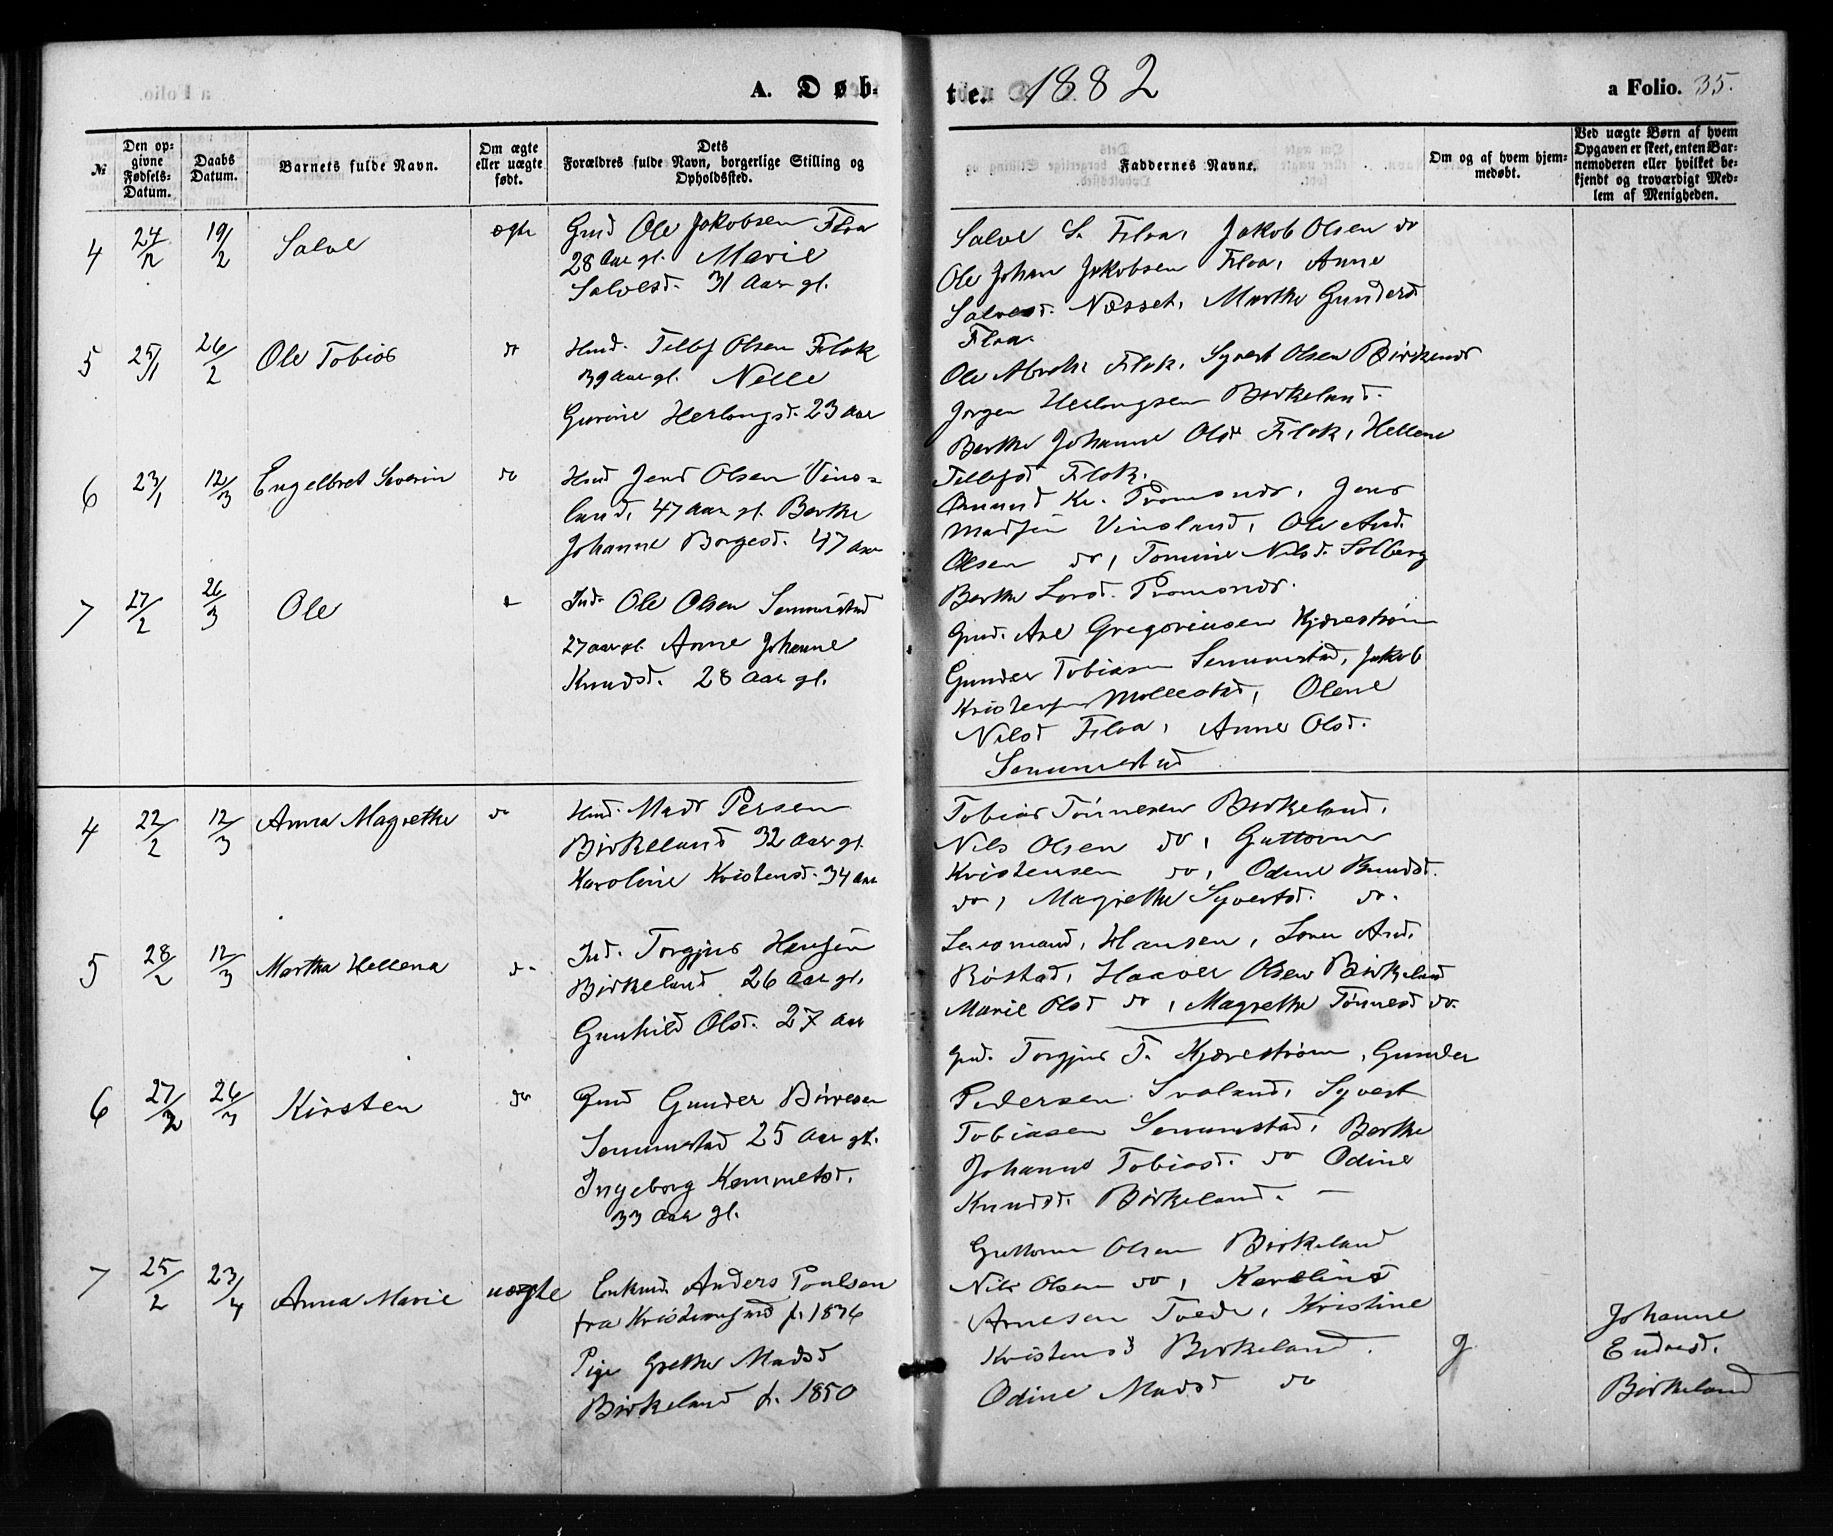 A. Døb-
te. 1882
a Folio. 35.
№
Den opgivne Fødsels-Datum.
Daabs Datum.
Barnets fulde Navn.
Om ægte eller uægte født.
Dets Forældres fulde Navn, borgerlige Stilling og Opholdssted.
Faddernes Navne.
Om og af hvem hjemmedøbt.
Ved uægte Børn af hvem Opgaven er skeet, enten Barnemoderen eller hvilket bekjendt og troværdigt Medlem af Menigheden.
4 24/12 19/2 Salve ægte Gmd Ole Jakobsen Flaa
28 Aar gl. Marie
Salvesd. 31 Aar gl.
Salve S. Flaa, Jakob Olsen do
Ole Johan Jakobsen Flaa, Anne
Salvesd. Næsset, Marthe Gundersd
Flaa.
5 25/1 26/2 Ole Tobias do Hmd. Tellef Olsen Flak
39 Aar gl. Nelle
Gurine Herlougsd. 23 Aar
Ole Abrah. Flak, Syvert Olsen Birkenes
Jørgen Herlougsen Birkeland.
Berthe Johanne Olsd Flak, Hellene
Tellefsd Flak.
6 23/1 12/3 Engelbret Severin do Hmd Jens Olsen Vins-
land, 47 Aar gl. Berthe
Johanne Borgesd. 47 Aar
Amund Kr. Tromsnes, Jens
Madsen Vinsland, Ole And.
Olsen do, Tomine Nilsd. Solberg
Berthe Larsd. Tromsnes.
7 27/2 26/3 Ole Ind. Ole Olsen Semmestad
27 Aar gl. Anne Johanne
Knudsd. 28 Aar gl.
Gmd. Axl Gregoriusen Kjærestrøm
Gunder Tobiasen Semmestad, Jakob
Kristensen Mollestad, Olene
Nilsd Flaa, Anne Olsd.
Semmestad
4 22/2 12/3 Anna Magrethe do Hmd. Mads Persen
Birkeland 32 Aar gl.
Karoline Kristensd. 34 Aar
Tobias Tønnesen Birkeland,
Nils Olsen do, Guttorm
Kristensen do, Odine Knudsd.
do, Magrethe Syvertsd. do.
5 28/2 12/3 Martha Hellena do Ind. Torgjus Hansen
Birkeland 26 Aar gl.
Gunhild Olsd. 27 Aar
Hansen, And.
Røstad, Haaver Olsen Birkeland
Marie Olsd do, Magrethe Tønnesd do.
6 27/2 26/3 Kirsten do Gmd Gunder Børresen
Semmestad 25 Aar gl.
Ingeborg Kemmetsd.
33 Aar gl.
Gmd. Torgjus T. Kjærestrøm, Gunder
Pedersen Svaland, Syvert
Tobiasen Semmestad, Berthe
Johanne Tobiasd. do Odine
Knudsd. Birkeland. –
7 25/2 23/4 Anna Marie uægte Enkmd. Anders Poulsen
fra Kristianssand f. 1836
Pige Grethe Madsd
Birkeland f. 1850
Guttorm Olsen Birkeland
Nils Olsen do, Karoline
Arnesen Tvede, Kristine
Kristensd Birkeland.
Odine Madsd do
g
Johanne
Endresd.
Birkeland